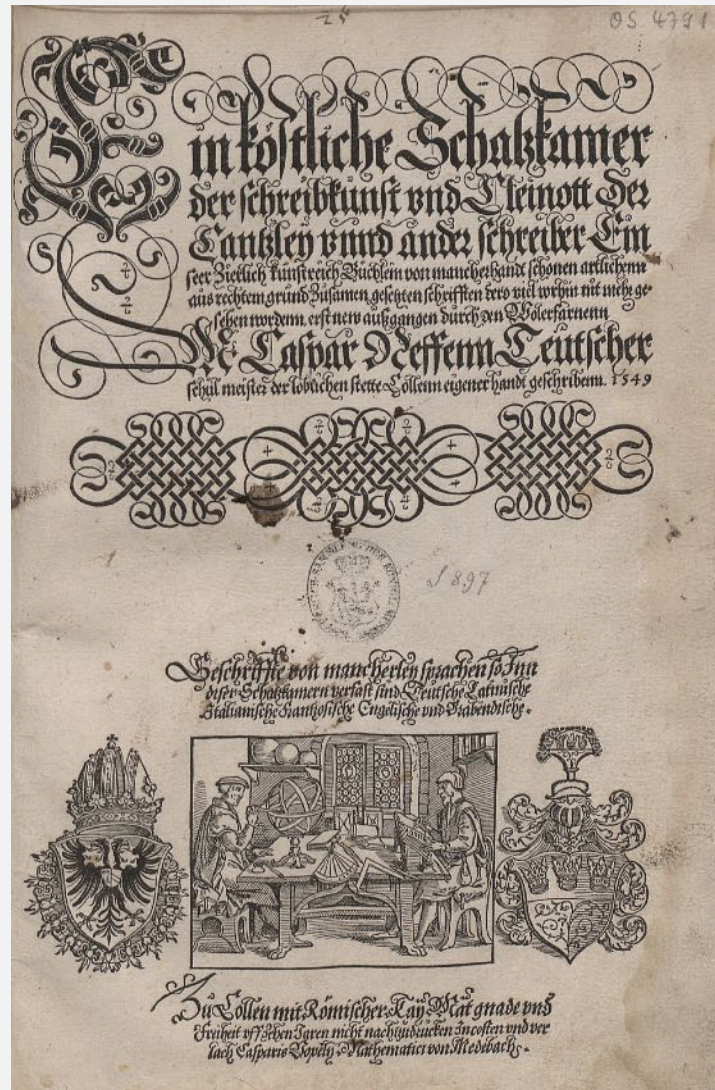 OS 4791
Ein köstliche Schatzkamer
der schreibkunst vnd Cleinott der
Cantzley vnnd ander schreiber Ein
seer Zierlich kunstreich Büchlein von mancherhandt schönen artlichenn
aus rechtem grund Zusamen gesetzten schrifften dero viel vorhin nit mehr ge-
sehen wordenn erst new außgangen durch den Wolerfarnenn
M. Caspar Neffenn Teutscher
schul meister der löblichen stette Cöllenn eigener handt geschribenn. 1549
S 897
Geschriffte von mancherley sprachen so Inn
diser Schatzkamern verfast sind Teutsche Latinische
Italianische Frantzosische Engelische vnd Brabendische.
Zů Cöllen mit Römischer Kay Mat gnade vnd
Freiheit vff Zehen Jaren nicht nachzudrucken Incosten vnd ver
lach Casparis Vopelij Mathematici von Medebach.